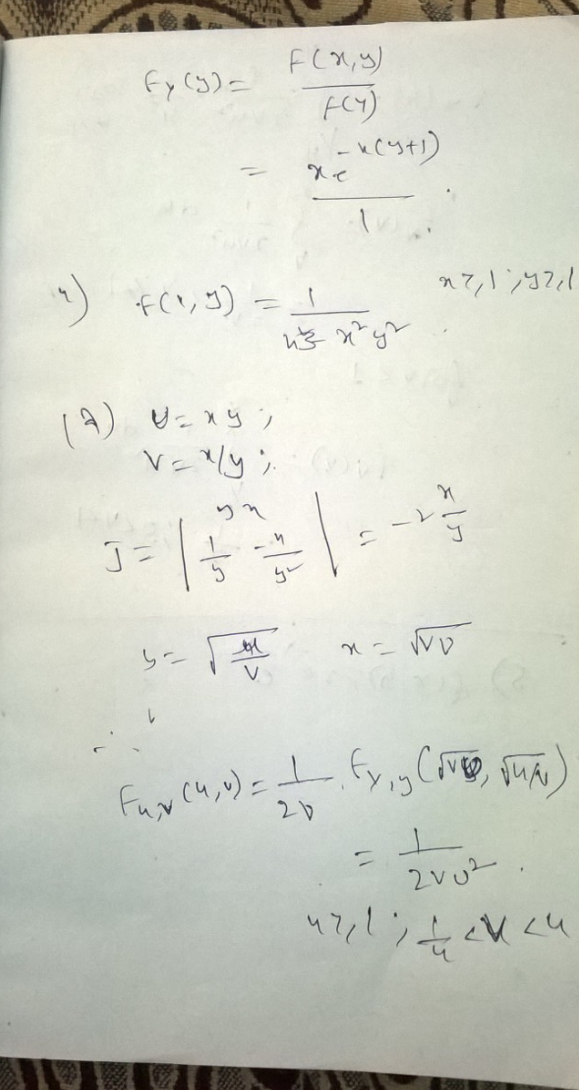 Fy(y) = F(x,y) / F(y)
= xe^{-x(y+1)} / 1 .
4) f(x,y) = 1 / x²y² x ≥ 1 ; y ≥ 1
(a) U = xy ;
V = x/y ;
J = | y x ; 1/y -x/y² | = -2 x/y
y = √(u/v) x = √vu
∴
Fu,v (u,v) = 1/2v . Fx,y (√vu, √u/v)
= 1 / 2vu² .
u ≥ 1 ; 1/u < v < u